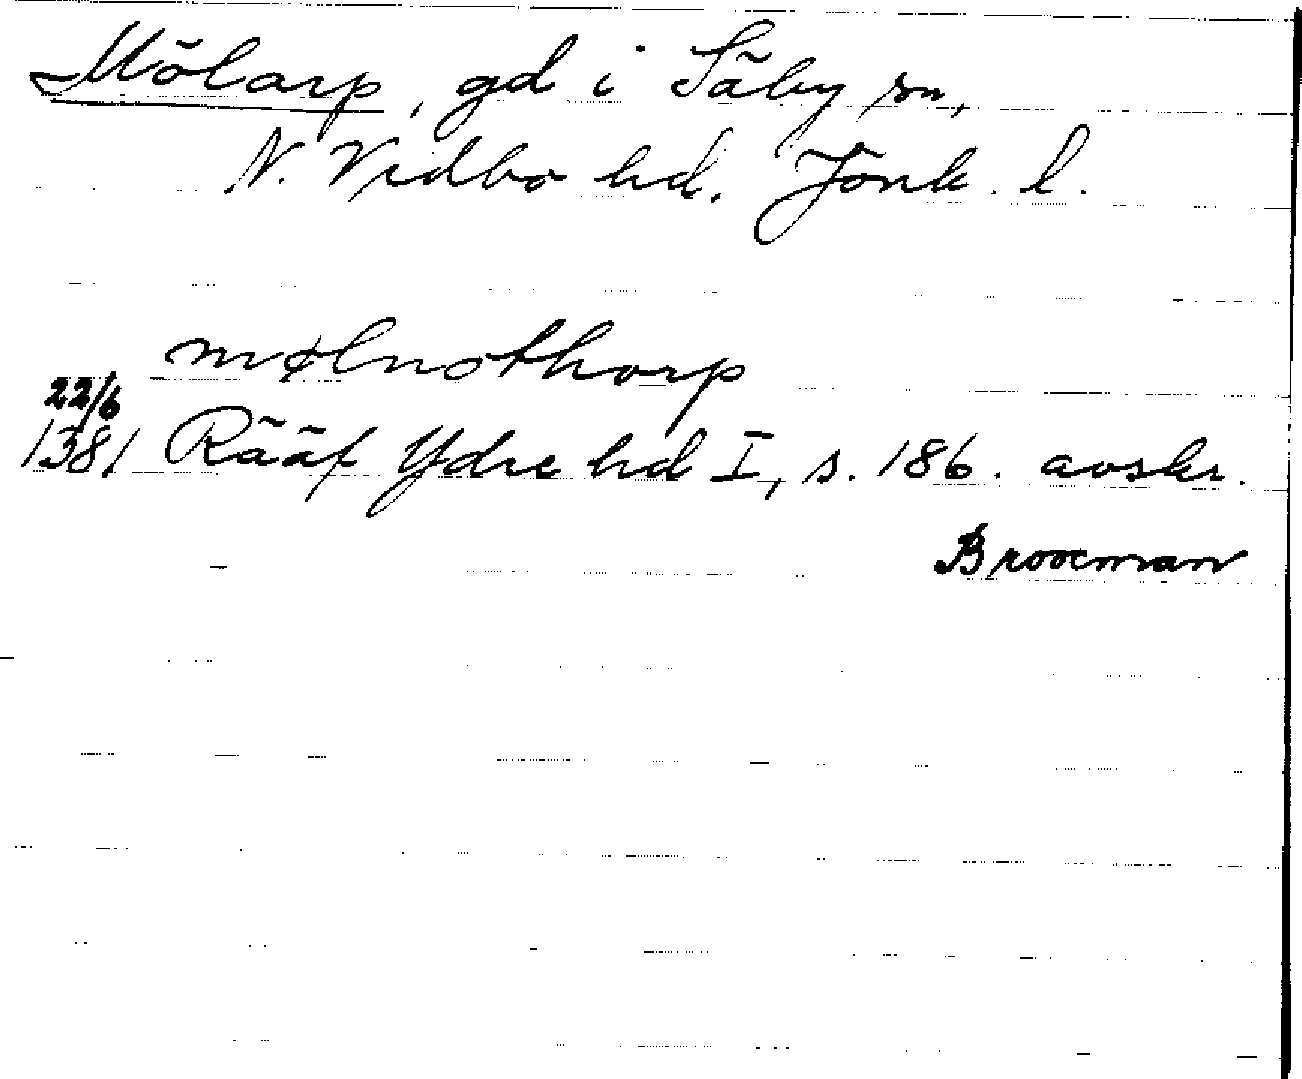 Mölarp, gd i Säby sn,
N. Vedbo hd. Jönk. l.
mølnothorp
22/6
1381 Rääf Ydre hd I, s. 186. avskr.
Broocman